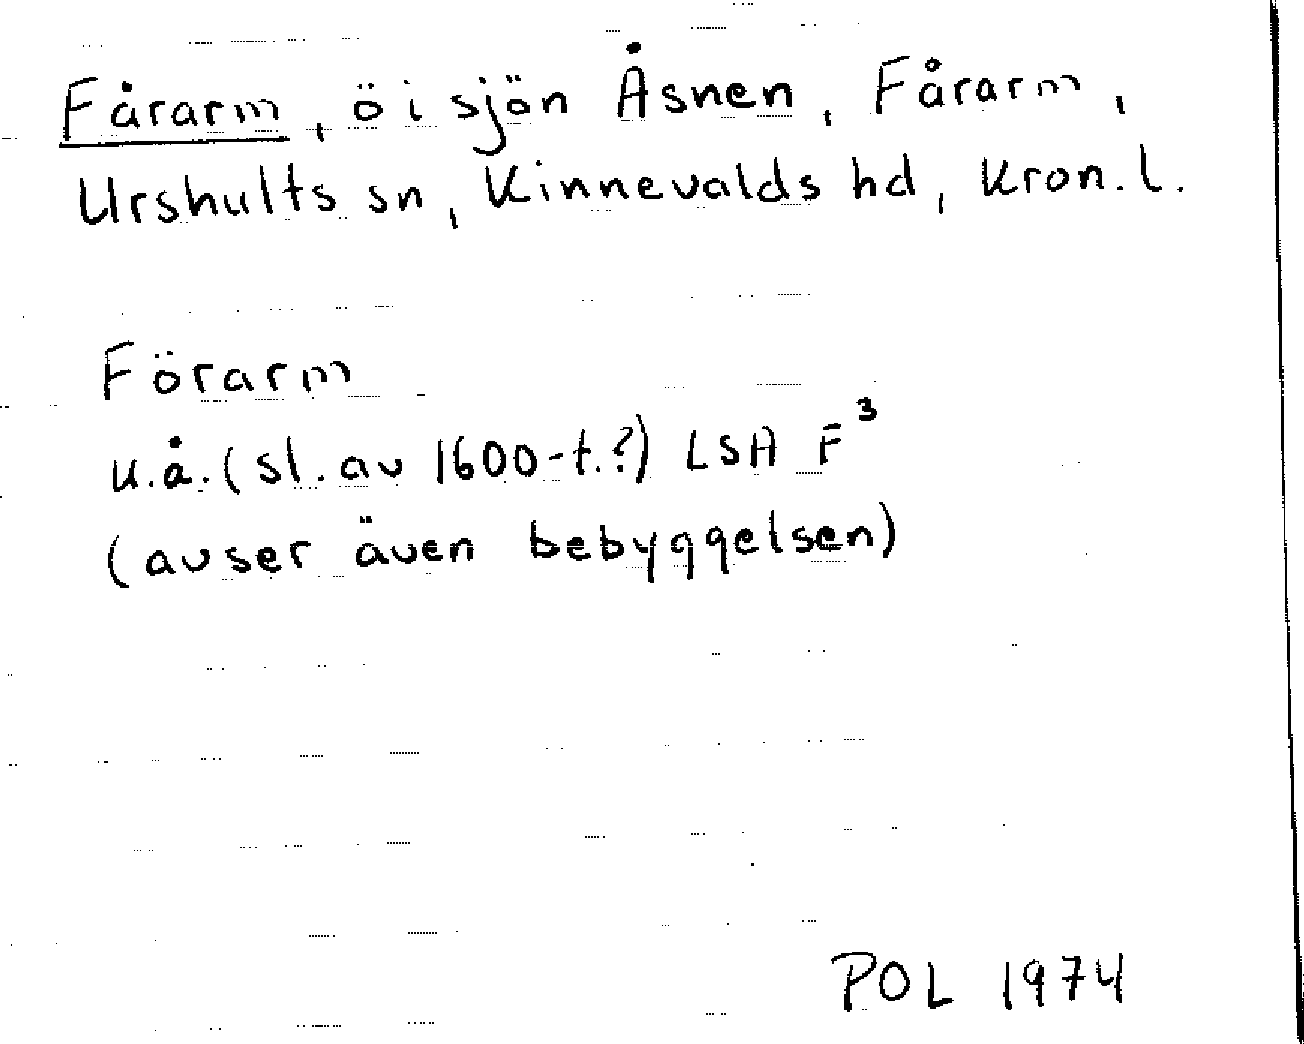 Fårarm, ö i sjön Åsnen, Fårarm,
Urshults sn, Kinnevalds hd, Kron. l.
Förarm
u.å. (sl. av 1600-t.?) LSA F³
(avser även bebyggelsen)
POL 1974